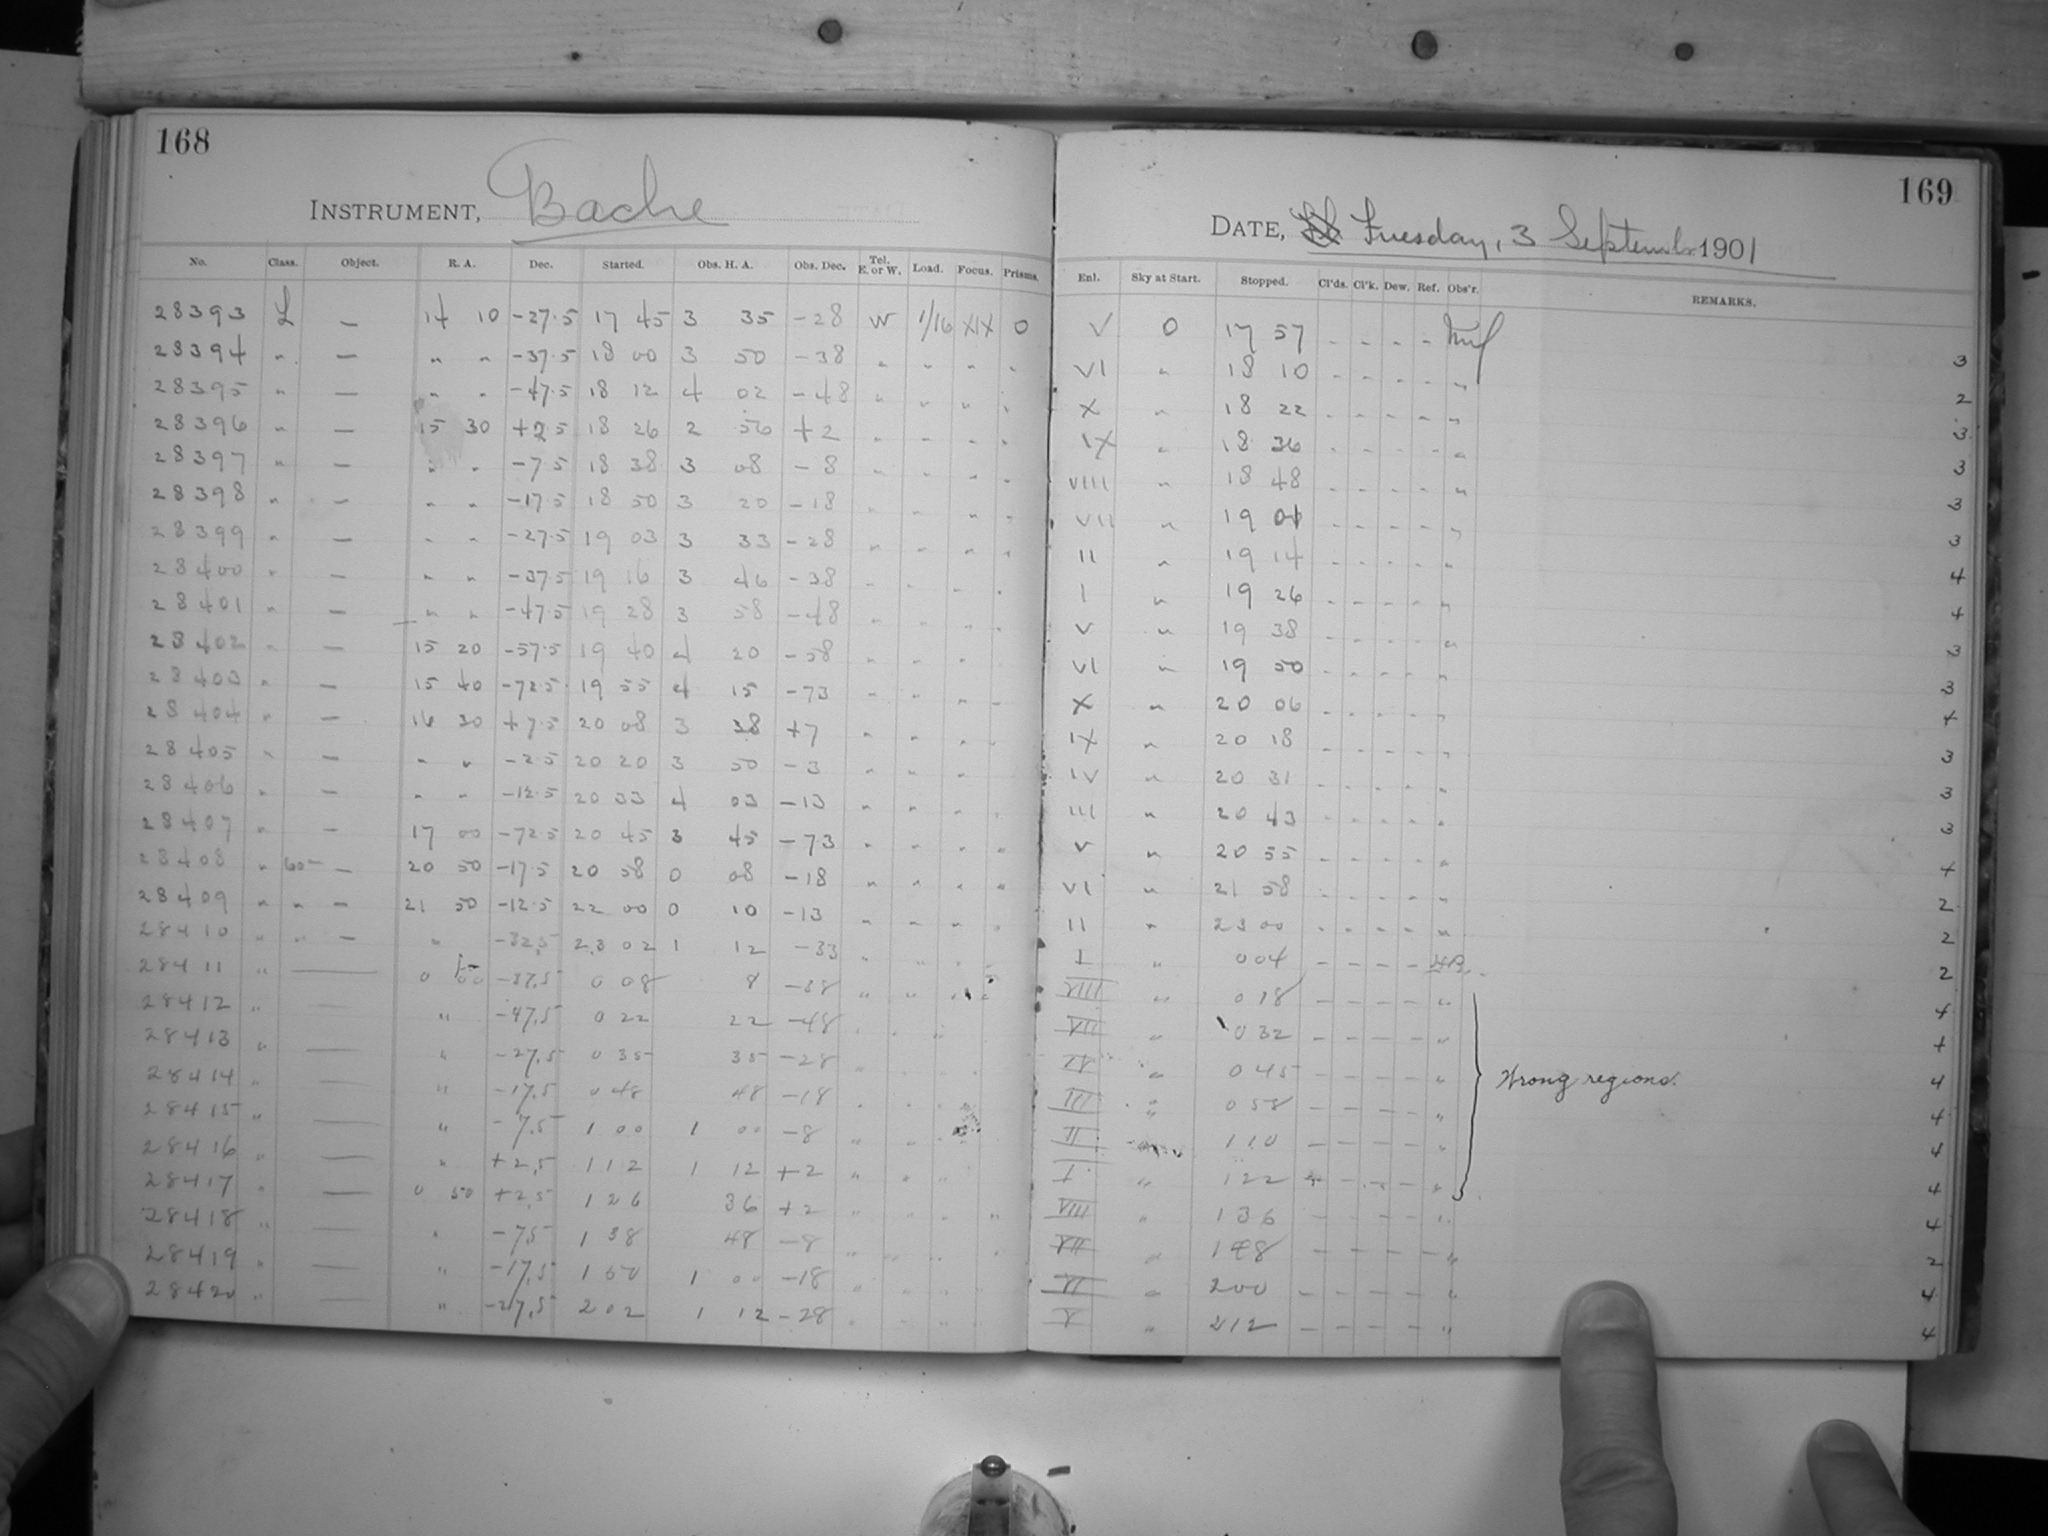 168
INSTRUMENT, Bache
No. Class. Object. R. A. Dec. Started. Obs. H. A. Obs. Dec. Tel. E. or W. Load. Focus. Prisms.
28393 L — 14 10 -27.5 17 45 3 35 -28 W 1/16 XIX 0
28394 " — " " -37.5 18 00 3 50 -38 " " " "
28395 " — " " -47.5 18 12 4 02 -48 " " " "
28396 " — 15 30 +2.5 18 26 2 56 +2 " " " "
28397 " — " " -7.5 18 38 3 08 -8 " " " "
28398 " — " " -17.5 18 50 3 20 -18 " " " "
28399 " — " " -27.5 19 03 3 33 -28 " " " "
28400 " — " " -37.5 19 16 3 46 -38 " " " "
28401 " — " " -47.5 19 28 3 58 -48 " " " "
28402 " — 15 20 -57.5 19 40 4 20 -58 " " " "
28403 " — 15 40 -72.5 19 55 4 15 -73 " " " "
28404 " — 16 30 +7.5 20 08 3 38 +7 " " " "
28405 " — " " -2.5 20 20 3 50 -3 " " " "
28406 " — " " -12.5 20 33 4 03 -13 " " " "
28407 " — 17 00 -72.5 20 45 3 45 -73 " " " "
28408 " 60m — 20 50 -17.5 20 58 0 08 -18 " " " "
28409 " " — 21 50 -12.5 22 00 0 10 -13 " " " "
28410 " " — " -32.5 23 02 1 12 -33 " " " "
28411 " — 0 00 -37.5 0 08 8 -38 " " " "
28412 " — " -47.5 0 22 22 -48 " " "
28413 " — " -27.5 0 35 35 -28
28414 " — " -17.5 0 48 48 -18
28415 " — " -7.5 1 00 1 00 -8 " "
28416 " — " +2.5 1 12 1 12 +2 " " "
28417 " — 0 50 +2.5 1 26 36 +2 " " " "
28418 " — " -7.5 1 38 48 -8 " " " "
28419 " — " -17.5 1 50 1 00 -18 " " "
28420 " — " -27.5 2 02 1 12 -28 " " "
169
DATE, Tuesday, 3 September 1901
Enl. Sky at Start. Stopped. Cl'ds. Cl'k. Dew. Ref. Obs'r. REMARKS.
V 0 17 57 - - - - 3
VI " 18 10 - - - - " 2
X " 18 22 - - - - " 3
IX " 18 36 - - - - " 3
VIII " 18 48 - - - - " 3
VII " 19 01 - - - - " 3
II " 19 14 - - - - " 4
I " 19 26 - - - - " 4
V " 19 38 - - - - " 3
VI " 19 50 - - - - " 3
X " 20 06 - - - - " 4
IX " 20 18 - - - - " 3
IV " 20 31 - - - - " 3
III " 20 43 - - - - " 3
V " 20 55 - - - - " 4
VI " 21 58 - - - - " 2
II " 23 00 - - - - " 2
I " 0 04 - - - - 2
VIII " 0 18 - - - - " 4
VII " 0 32 - - - - " 4
IV " 0 45 - - - - " Wrong regions. 4
III " 0 58 - - - - " 4
II 1 10 - - - - " 4
I " 1 22 - - - - " 4
VIII " 1 36 - - - - " 4
VII " 1 48 - - - - " 2
VI " 2 00 - - - - " 4
V " 2 12 - - - - " 4